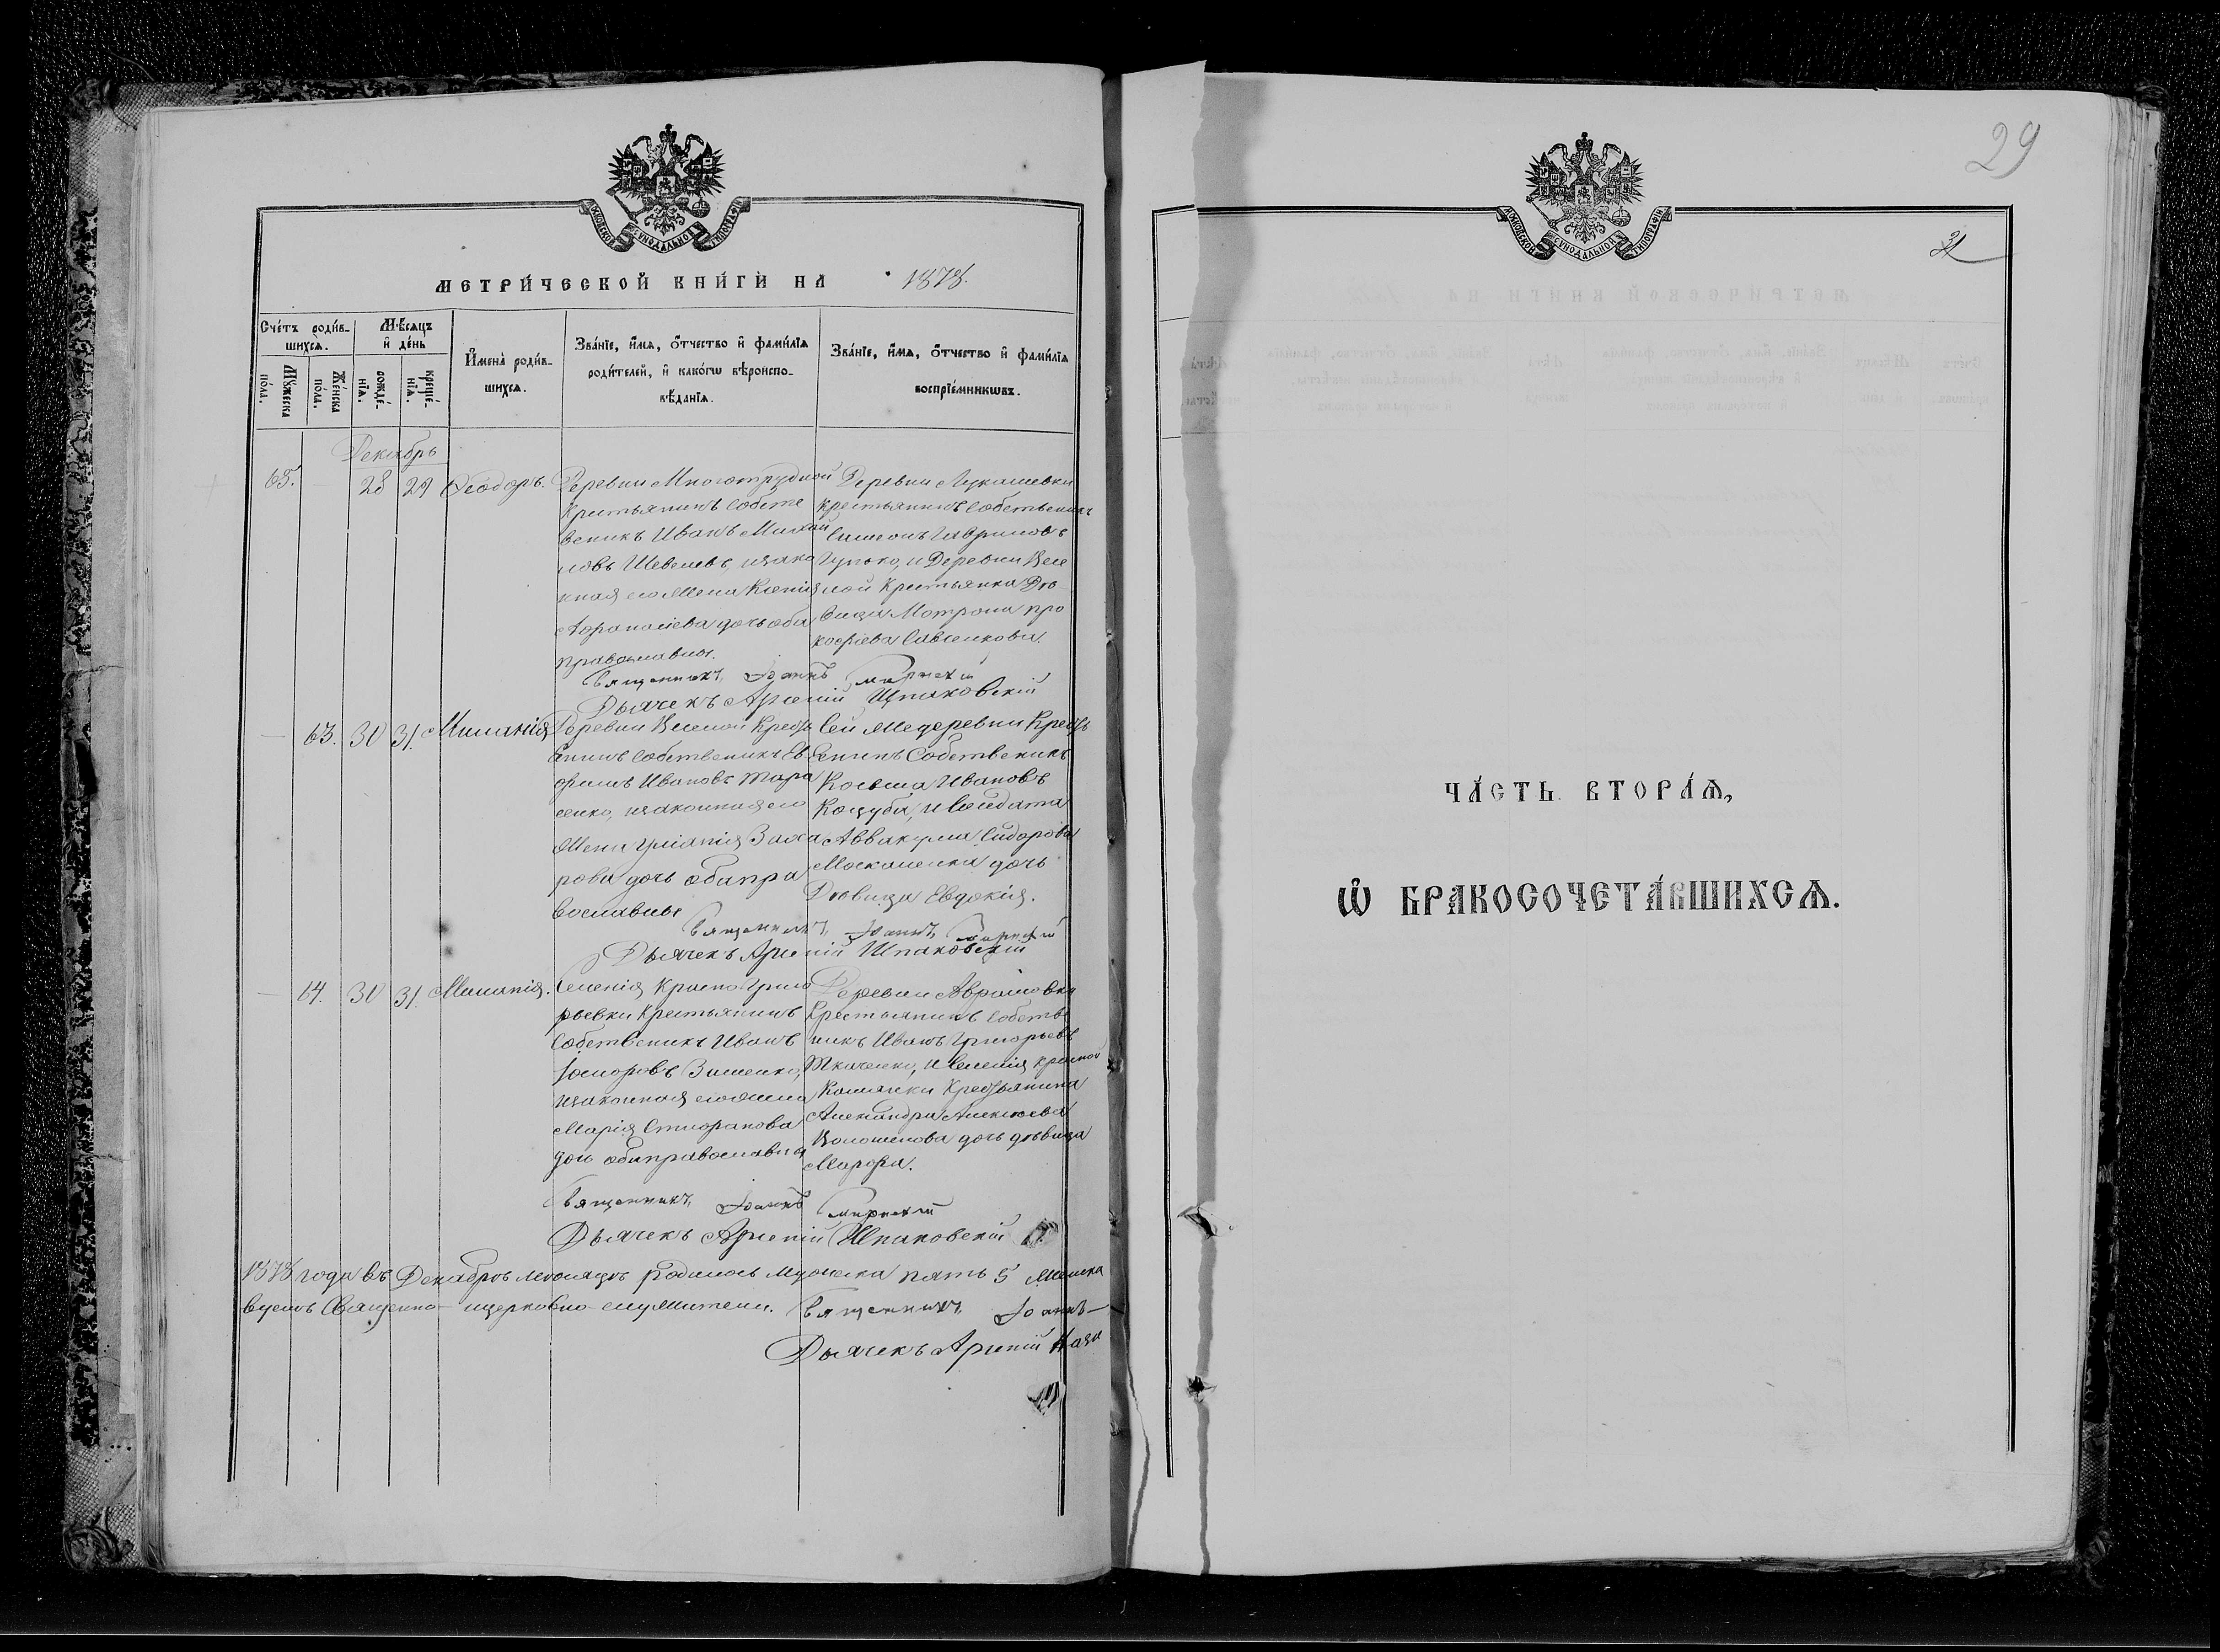 МОСКОВСКОЙ СѴНОДАЛЬНОЙ ТИПОГРАФІИ
МЕТРИ́ЧЕСКОЙ КНИ́ГИ НА 1878.
Сче́тъ роди́в-
шихсѧ.
Мѣ́сѧцъ
и҆ де́нь
Мꙋ́жеска
по́ла.
Же́нска
по́ла.
рожде́-
нїѧ.
креще́-
нїѧ.
И҆мена̀ роди́в-
шихсѧ.
Зва́нїе, и҆́мѧ, ѻ҆́тчество и҆ фами́лїѧ
роди́телей, и҆ како́гѡ вѣроиспо-
вѣ́данїѧ.
Зва́нїе, и҆́мѧ, ѻ҆́тчество и҆ фами́лїѧ
воспрїе́мникѡвъ.
Декабрь
65. 28 29 Ѳеодоръ.
Деревни Многотрудной
Крестьянинъ Собств
веникъ Иванъ Михай
ловъ Шевелевъ, изако
нная его жена Ксенія
дочь оба
православны.
Деревни Лукашевки
крестьянинъ Собственикъ
Симеонъ Гавриловъ
и Деревни Весе
лой Крестьянка Дѣ
вица Матрона Про
кофіева Савченкова.
Священникъ Іоаннъ Смирнскій
Дьячекъ Арсеній Шпаковскій
63. 30 31. Миланія
Деревни Веселой Кресть
янинъ Собственикъ Ев
фимъ Ивановъ Тара
сенко, изаконная его
жена Іуліанія Заха
рова дочь оба пра
вославны
Сей же деревни Кресть
янинъ Собственикъ
Косьма Ивановъ
Коцуба, и Солдата
Аввакума Сидорова
Москаленка дочь
Дѣвица Евдокія.
Священникъ Іоаннъ Смирнскій
Дьячекъ Арсеній Шпаковскій
64. 30 31. Миланія.
Селенія Красно Григо
рьевки Крестьянинъ
Собственикъ Иванъ
изаконная его жена
Марія
дочь оба православны
Деревни Аврамовки
Крестьянинъ Собстве
никъ Иванъ Григорьевъ
Ткаченко, и Селенія Красной
Каменки Крестьянина
Александра Алексѣева
Волошенова дочь дѣвица
Марфа.
Священникъ Іоаннъ Смирнскій
Дьячекъ Арсеній Шпаковскій
1878 года въ Декабрѣ мѣсяцѣ родилось мужеска пять 5 женска
Священно-церковно-служители. Священникъ Іоаннъ
Дьячекъ Арсеній
29
МОСКОВСКОЙ СѴНОДАЛЬНОЙ ТИПОГРАФІИ
ЧА́СТЬ ВТОРА́Ѧ,
Ѽ БРАКОСОЧЕТА́ВШИХСѦ.